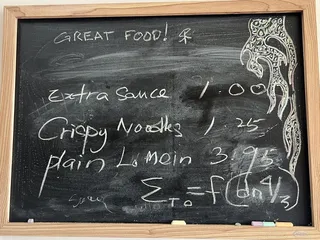 GREAT FOOD!
Extra Sauce 1.00
Crispy Noodles 1.25
plain Lo mein 3.95